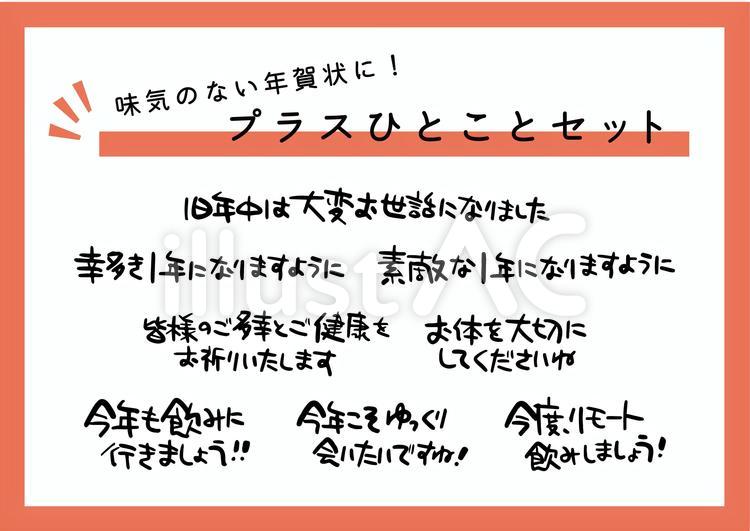 味気のない年賀状に！
プラスひとことセット
旧年中は大変お世話になりました
幸多き1年になりますように
素敵な1年になりますように
皆様のご多幸とご健康を
お祈りいたします
お体を大切に
してくださいね
今年も飲みに
行きましょう!!
今年こそゆっくり
会いたいですね!
今度、リモート
飲みしましょう!
illust AC